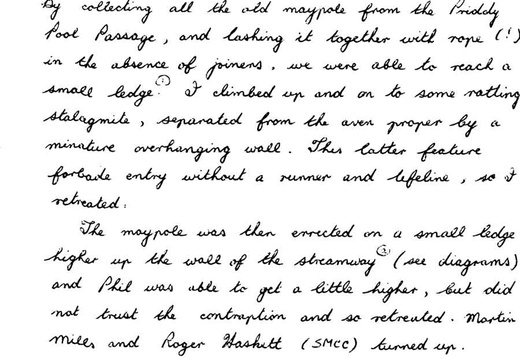 By collecting all the old maypole from the Priddy
Pool Passage, and lashing it together with rope (!)
in the absence of joiners, we were able to reach a
small ledge.① I climbed up and on to some rotting
stalagmite, separated from the aven proper by a
minature overhanging wall. This latter feature
forbade entry without a runner and lifeline, so I
retreated.
The maypole was then errected on a small ledge
higher up the wall of the streamway② (see diagrams)
and Phil was able to get a little higher, but did
not trust the contraption and so retreated. Martin
Mills and Roger Haskett (SMCC) turned up.